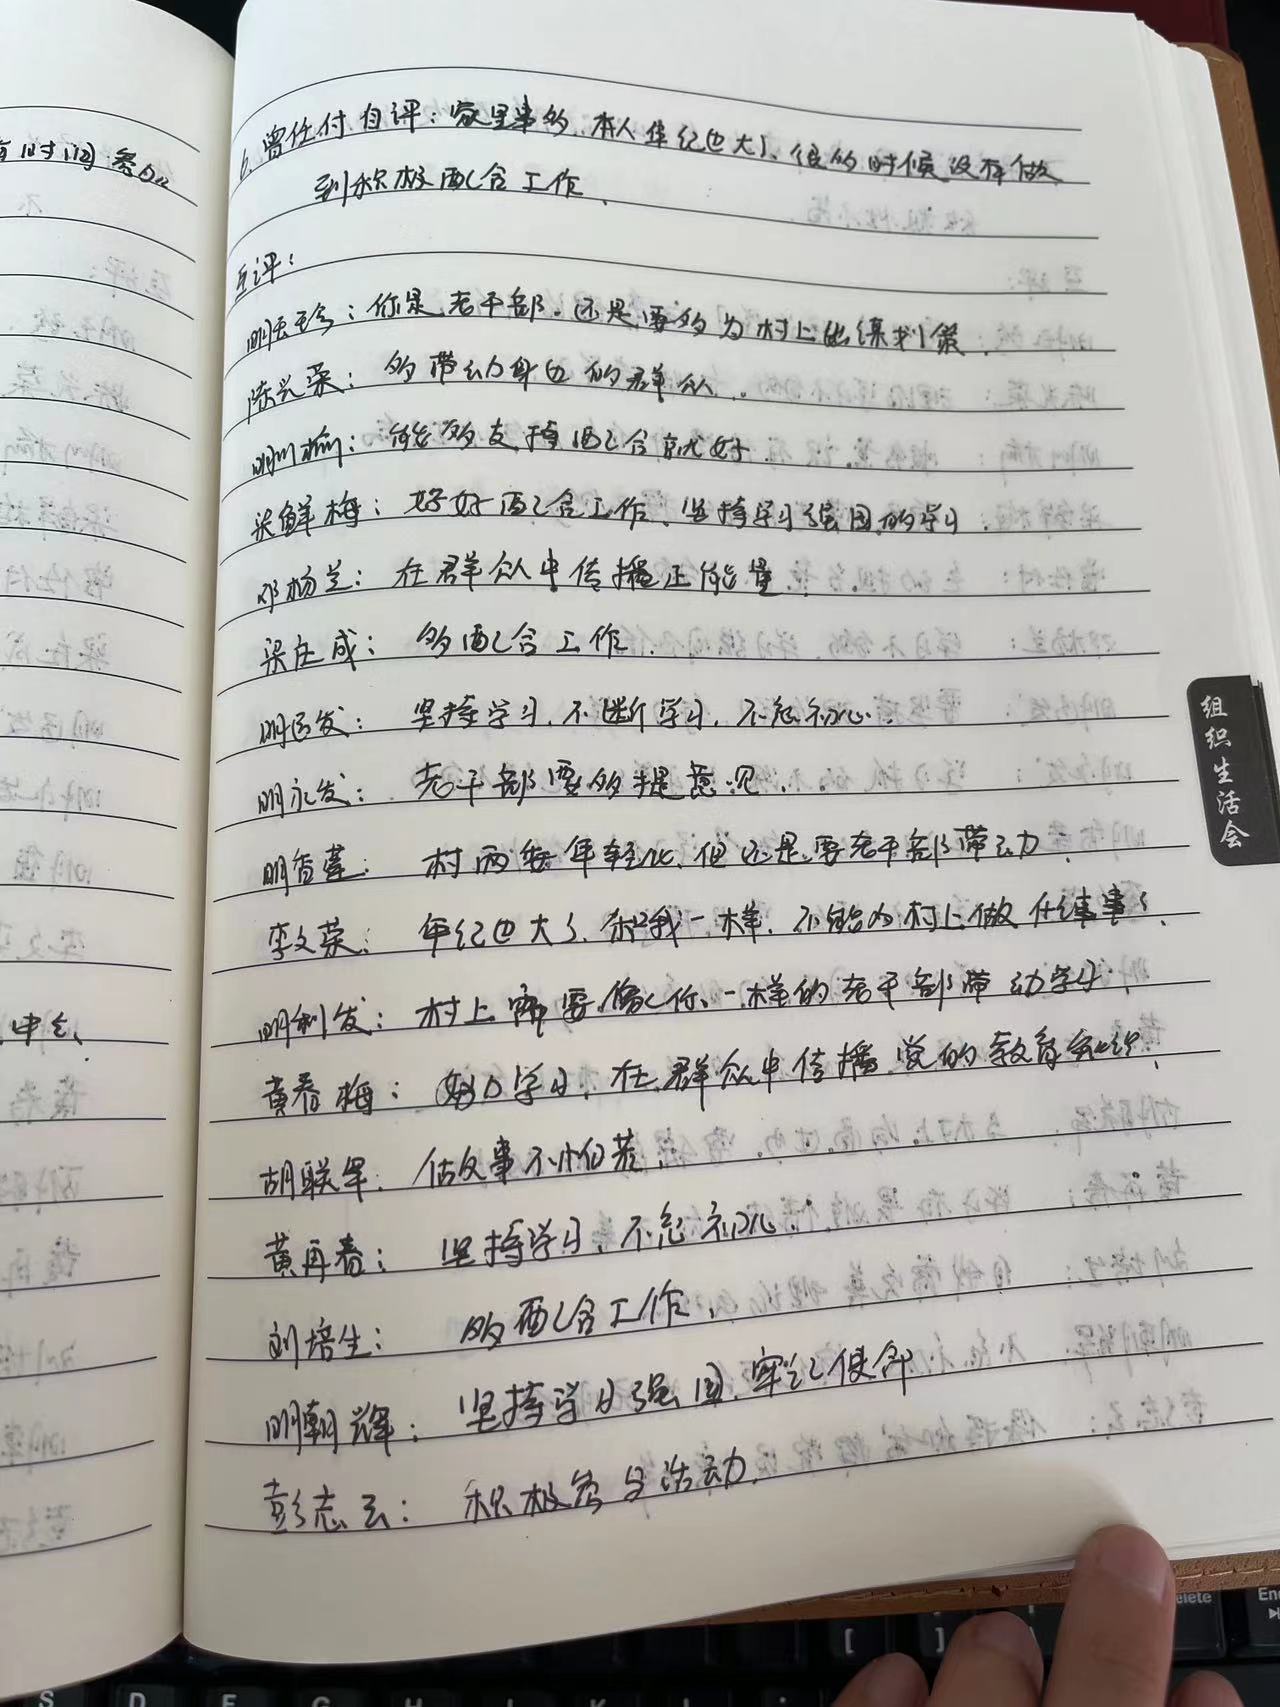 有时间参加
中去、
6、曾仕付自评：家里事多、本人年纪也大了、很多时候没有做
到积极配合工作、
互评：
明天珍：你是老干部、还是要多为村上出谋划策、
陈兴菜：多带动身边的群众、
明川榆：能多支持配合就好、
梁鲜梅：好好配合工作、坚持学习强国的学习
邓杨兰：在群众中传播正能量、
梁在成：多配合工作、
明发：坚持学习、不断学习、不忘初心、
明永发：老干部要多提意见、
明香莲：村两委年轻化、但还是要老干部带动、
李文菜：年纪也大了、和我一样、不能为村上做什么事了、
明利发：村上需要像你一样的老干部带动学习、
黄春梅：努力学习、在群众中传播党的教育知识、
胡联军：做事不怕苦、
黄再春：坚持学习、不忘初心、
刘培生：多配合工作、
明朝辉：坚持学习强国、牢记使命
彭志云：积极参与活动、
组织生活会
Delete
End
[
]
S
D
F
G
H
J
K
L